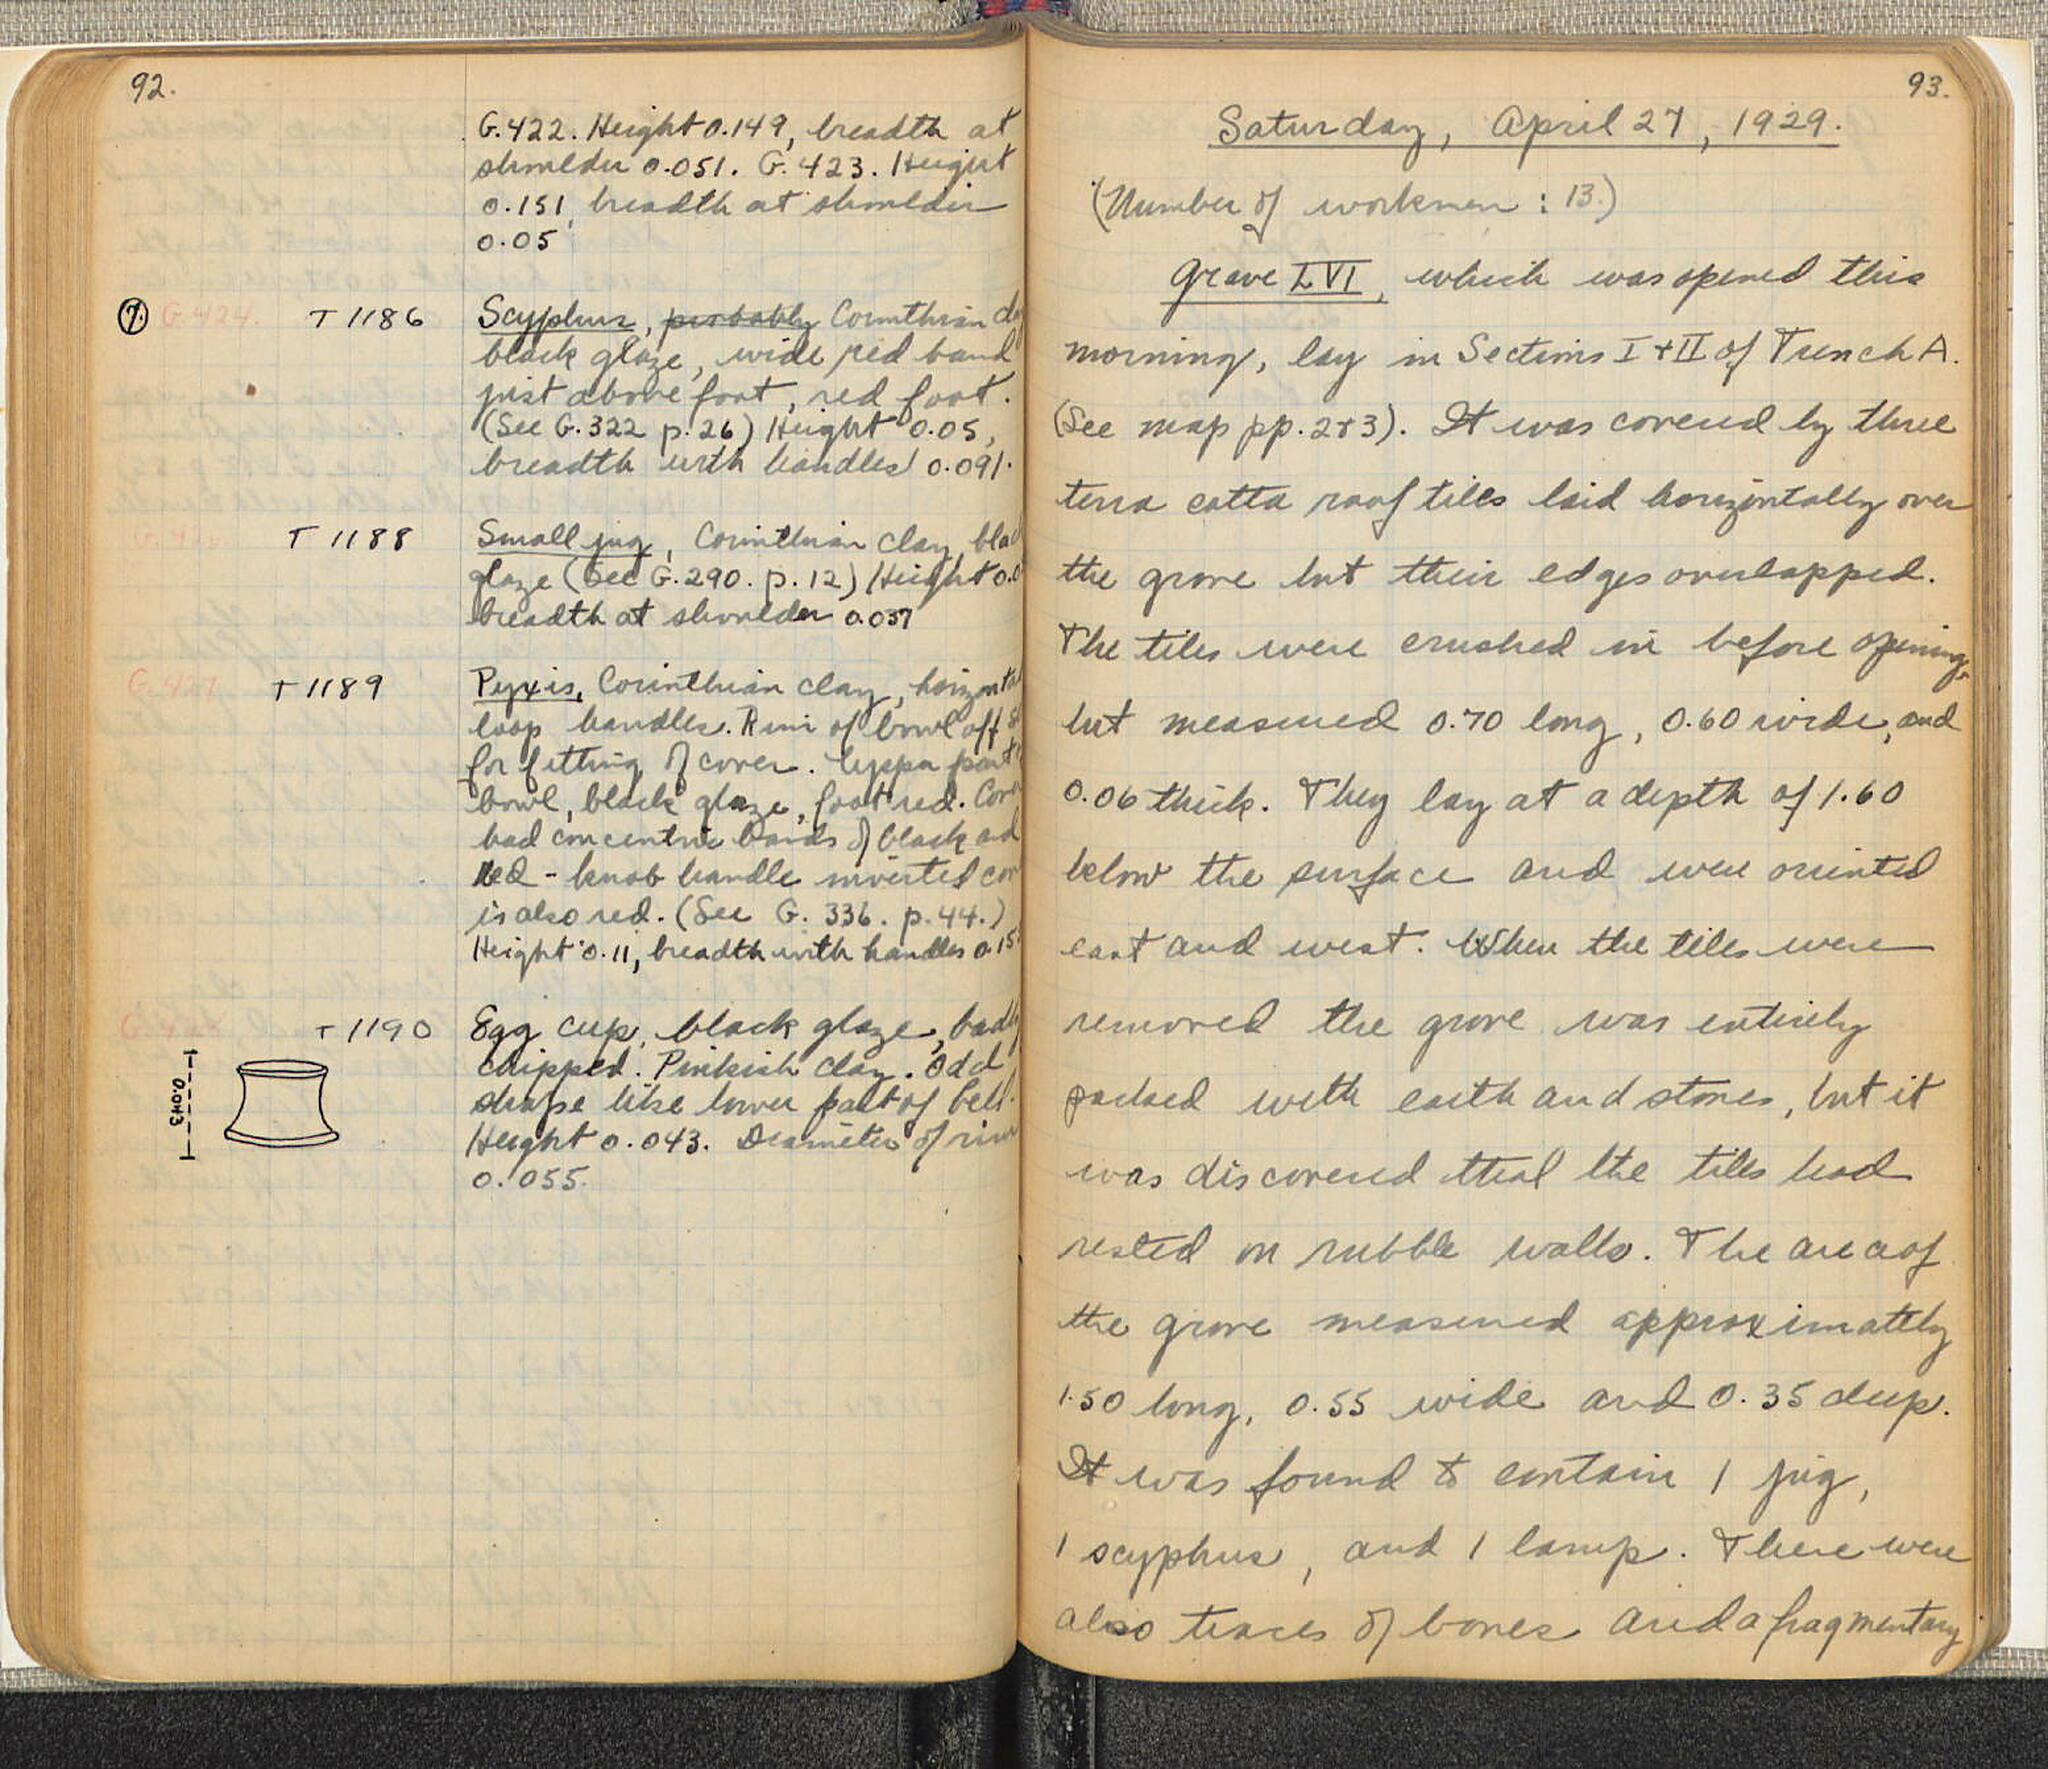 92.
G.422. Height 0.149, breadth at
shoulder 0.051. G.423. Height
0.151, breadth at shoulder
0.05
7. G.424. T 1186 Scyphus, probably Corinthian
black glaze, wide red band
just above foot, red foot.
(See G.322 p.26) Height 0.05,
breadth with handles 0.091.
T 1188 Small jug, Corinthian clay,
glaze (See G.290. p.12) Height
breadth at shoulder 0.037
G.427 T 1189 Pyxis, Corinthian clay,
loop handles. Rim of bowl off
for fitting of cover. Upper part
bowl, black glaze, foot red.
had concentric bands of black and
red - knob handle inverted
is also red. (See G. 336. p.44.)
Height 0.11, breadth with handles
T 1190 Egg cup, black glaze, badly
chipped. Pinkish clay. Odd
shape like lower part of bell.
Height 0.043. Diameter of rim
0.055.
0.043
93.
Saturday, April 27, 1929.
(Number of workmen : 13.)
Grave LVI, which was opened this
morning, lay in Sections I + II of Trench A.
(See map pp. 2+3). It was covered by three
terra cotta roof tiles laid horizontally over
the grave but their edges overlapped.
The tiles were crushed in before opening,
but measured 0.70 long, 0.60 wide, and
0.06 thick. They lay at a depth of 1.60
below the surface and were oriented
east and west. When the tiles were
removed the grave was entirely
packed with earth and stones, but it
was discovered that the tiles had
rested on rubble walls. The area of
the grave measured approximately
1.50 long, 0.55 wide and 0.35 deep.
It was found to contain 1 jug,
1 scyphus, and 1 lamp. There were
also traces of bones and a fragmentary